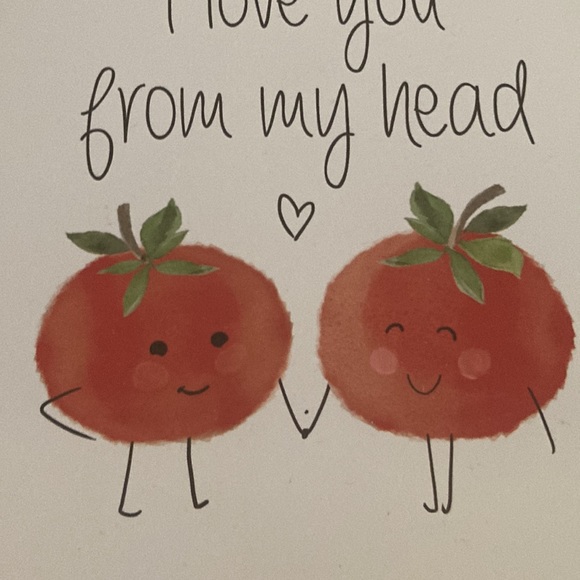 I love you
from my head